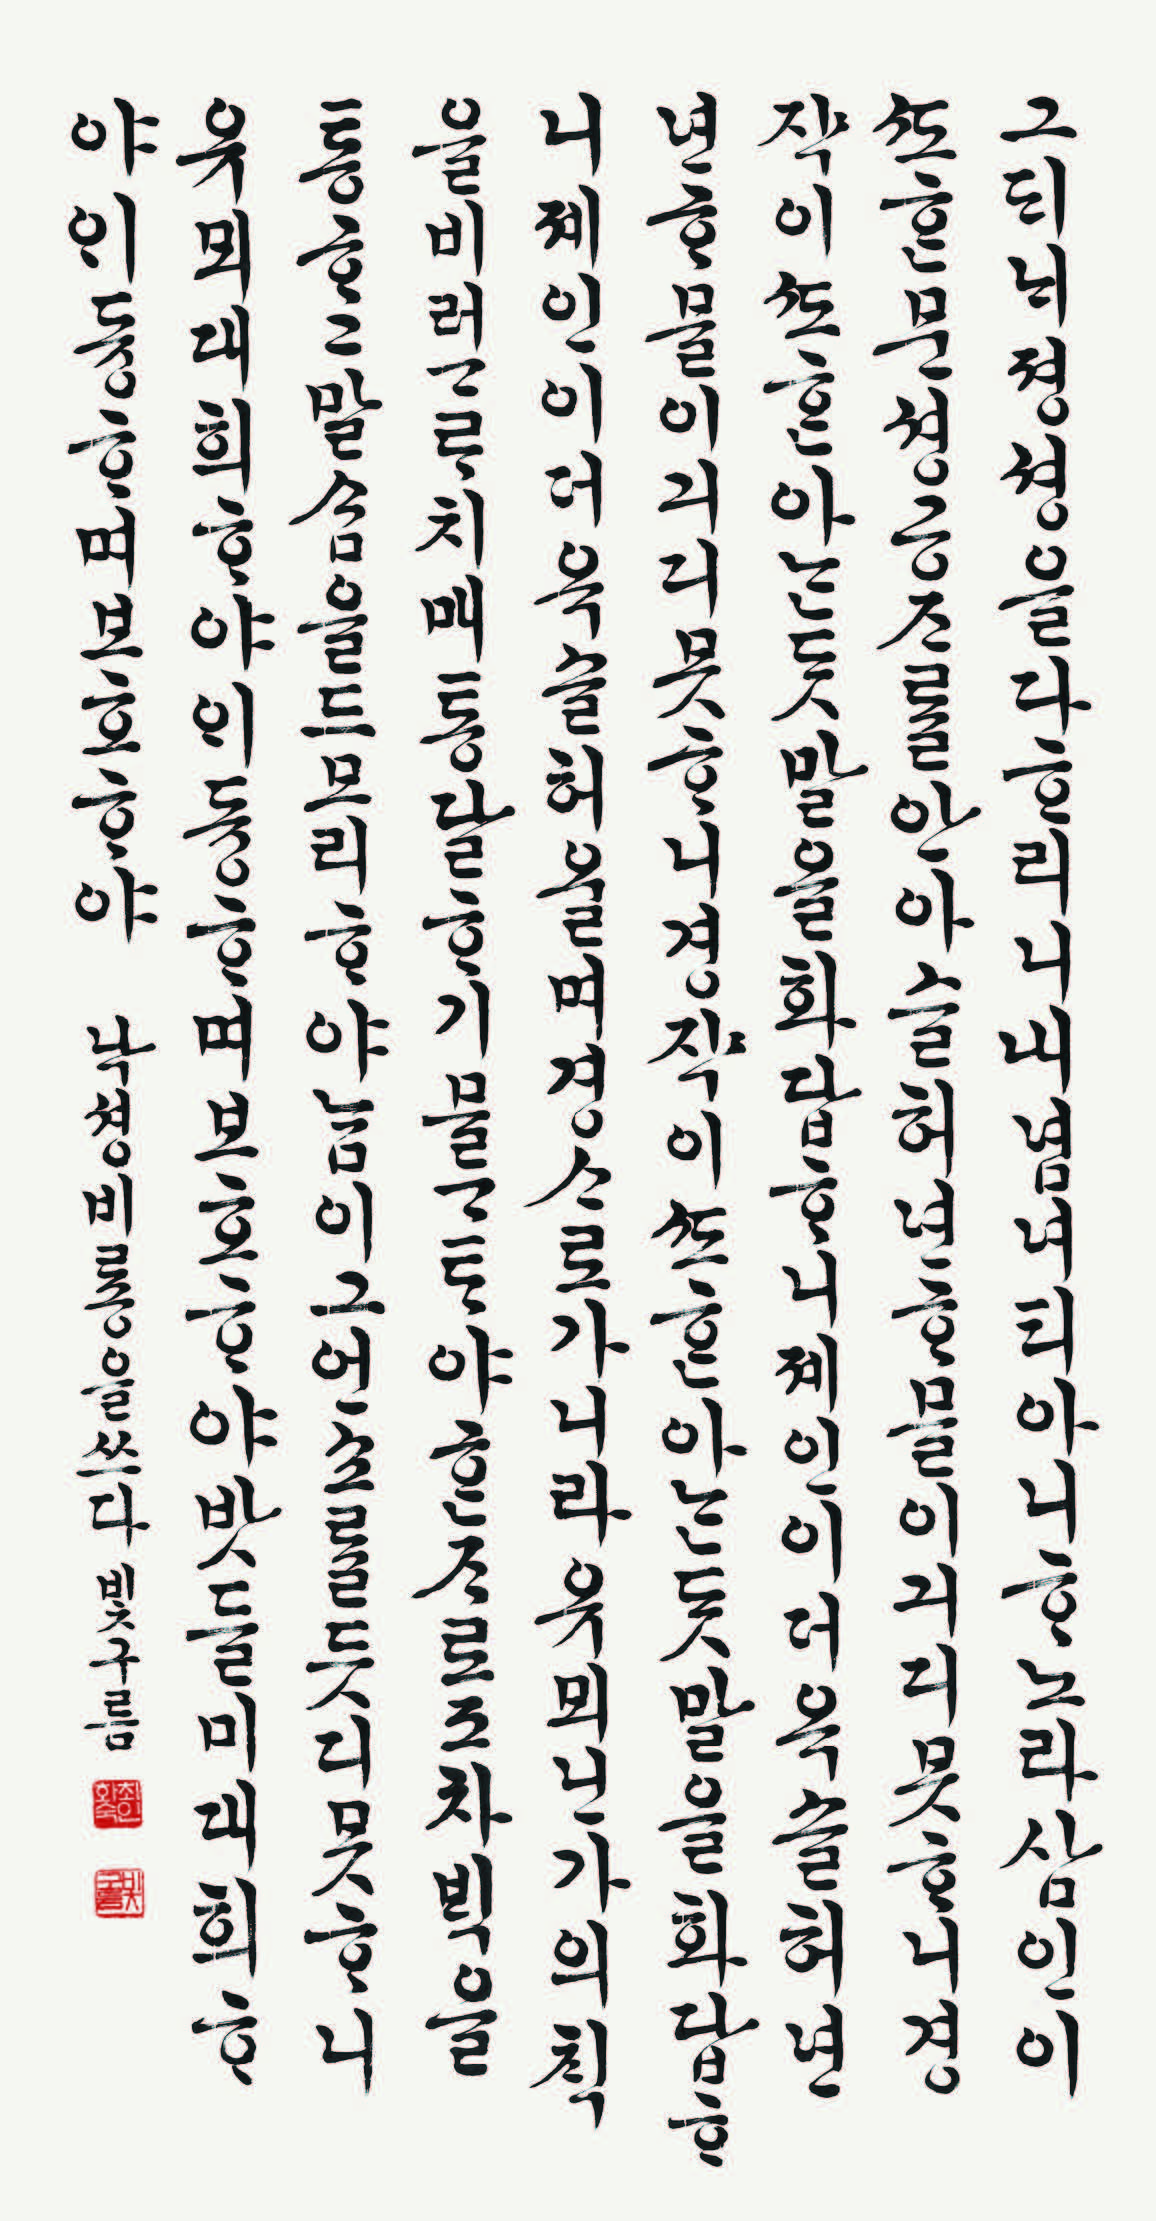 그ᄃᆡᄂᆡ졍셩을다ᄒᆞ리니내념녀티아니ᄒᆞ노라삼인이
ᄯᅩᄒᆞᆫ문셩공ᄌᆞᄅᆞᆯ안아슬허년ᄒᆞ믈이긔디못ᄒᆞ니경
쟉이ᄯᅩᄒᆞᆫ아ᄂᆞᆫᄃᆞᆺ말을화답ᄒᆞ니졔인이더욱슬허년
년ᄒᆞ믈이긔디못ᄒᆞ니경쟉이ᄯᅩᄒᆞᆫ아ᄂᆞᆫᄃᆞᆺ말을화답ᄒᆞ
니졔인이더욱슬허울며경ᄉᆞ로가니라유뫼닌가의ᄎᆡᆨ
을비러ᄀᆞᄅᆞ치매통달ᄒᆞ기믈ᄀᆞᄐᆞ야ᄒᆞᆫᄌᆞ로조차ᄇᆡᆨ을
통ᄒᆞ고말ᄉᆞᆷ을드므리ᄒᆞ야ᄂᆞᆷ이그언쇼ᄅᆞᆯ듯디못ᄒᆞ니
유뫼대희ᄒᆞ야ᄋᆡ듕ᄒᆞ며보호ᄒᆞ야밧들미대희ᄒᆞ
야ᄋᆡ듕ᄒᆞ며보호ᄒᆞ야 낙셩비룡을쓰다 빛구름